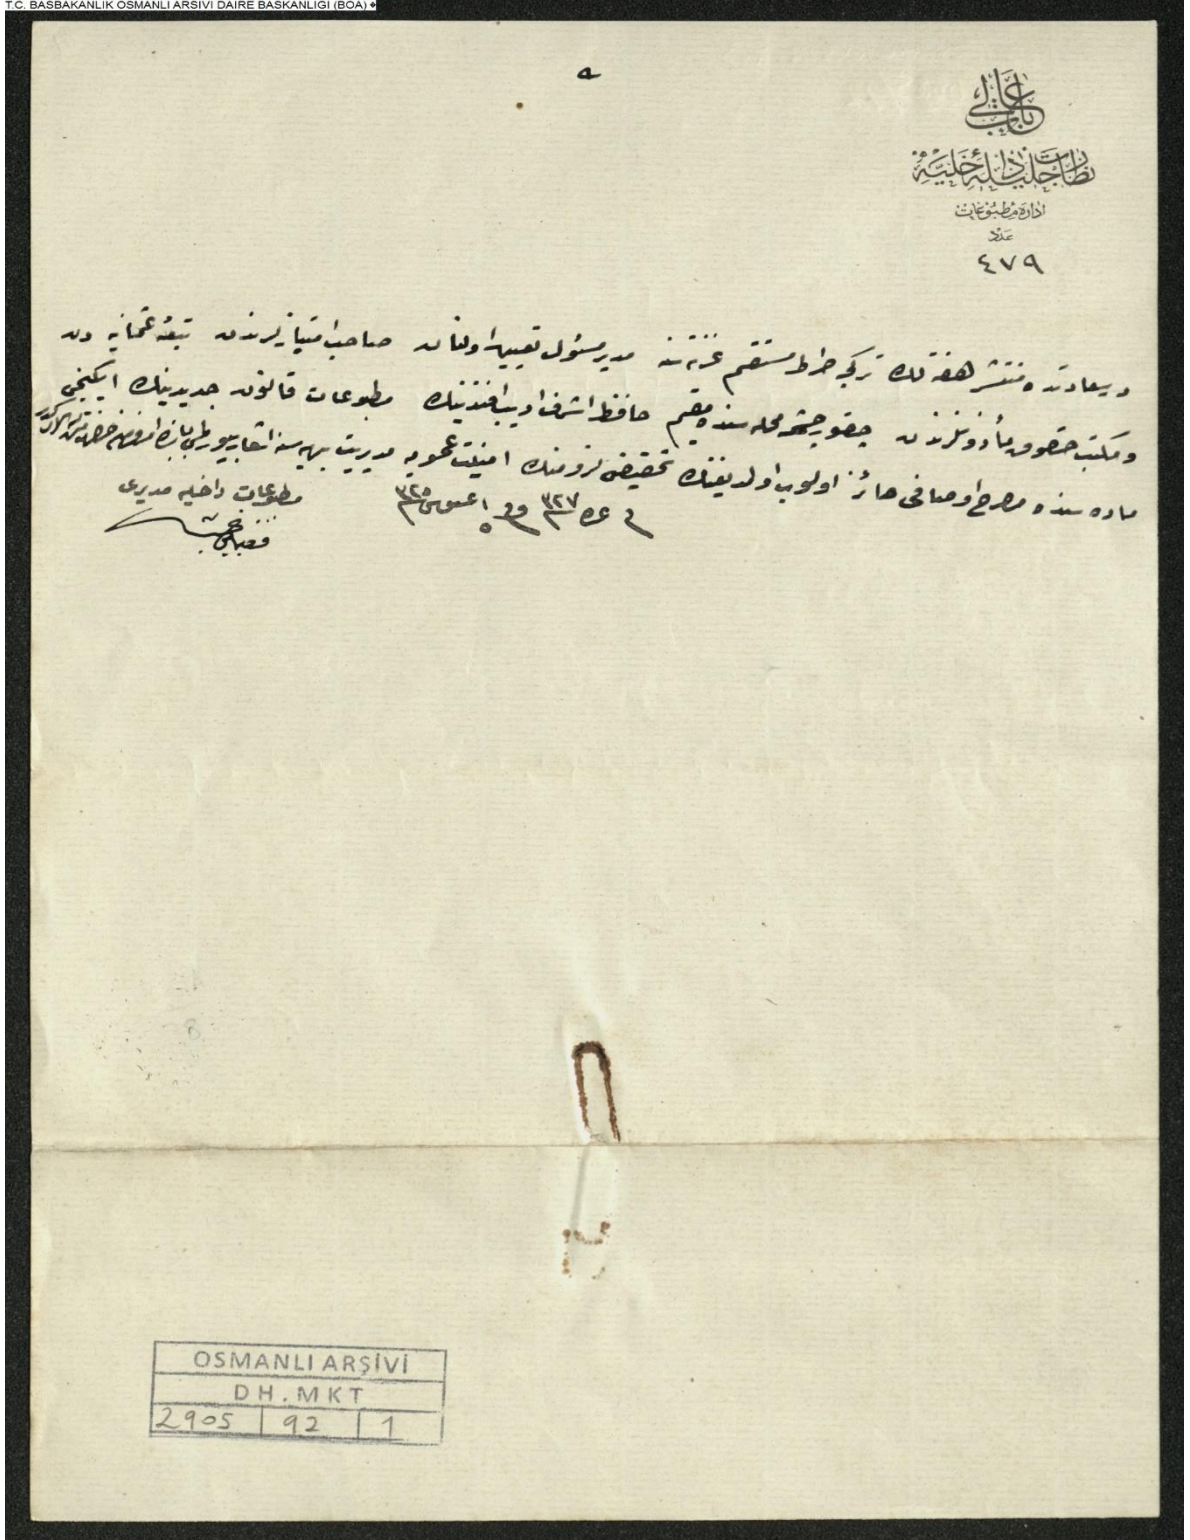 T.C. BASBAKANLIK OSMANLI ARSIVI DAIRE BASKANLIGI (BOA)
باب عالی
نظارت جلیلهٔ داخلیه
ادارهٔ مطبوعات
عدد
٤٧٩
درسعادتده منتشر هفته لك تركجه صراط مستقیم غزته سنه مدیر مسئول تعیین اولنان صاحب امتیازلرندن تبعهٔ عثمانیه دن
و مكتب حقوق مأذونلرندن چقور چشمه محله سنده مقیم حافظ اشرف ادیب افندینك مطبوعات قانون جدیدینك ایكنجی
ماده سنده مصرح اوصافی حائز اولوب اولمدیغنك تحقیقی لزومنك امنیت عمومیه مدیریت بهیه سنه اشعار بیورلمسی بابنده امر و فرمان حضرت
فی ٣٢٧ و فی اغستوس ٣٢٥
مطبوعات داخلیه مدیری
OSMANLI ARŞİVİ
DH.MKT
2905 92 1